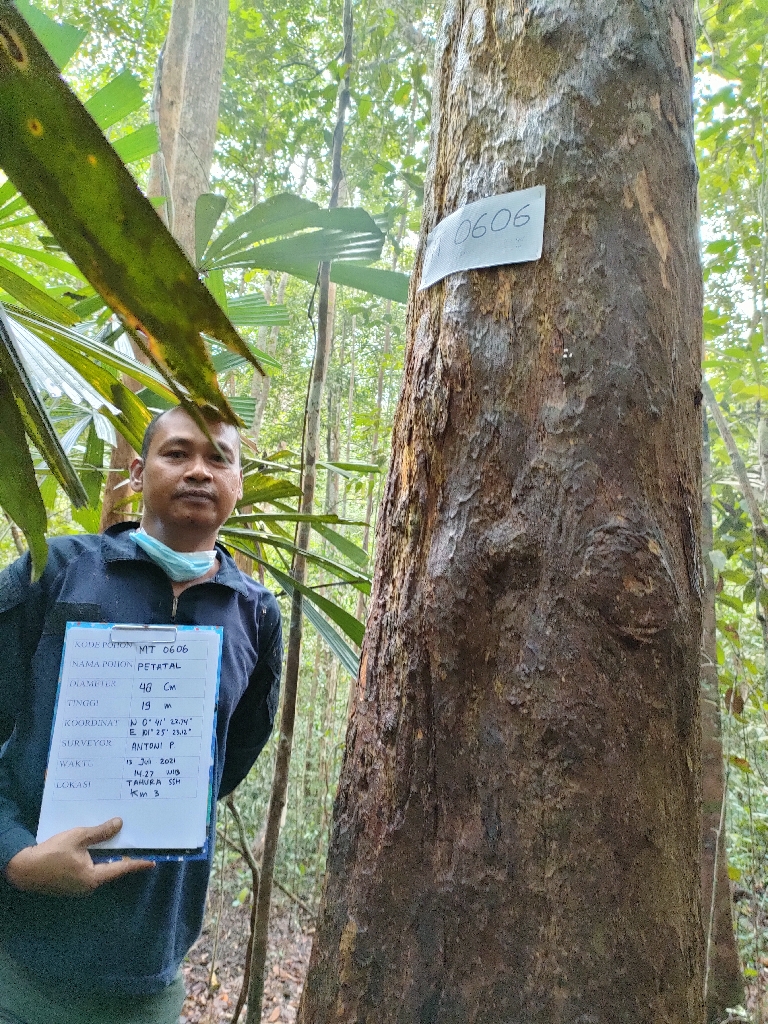 0606
KODE POHON MT 0606
NAMA POHON PETATAL
DIAMETER 48 Cm
TINGGI 19 m
KOORDINAT N 0° 41' 22.74"
E 101° 25' 23.12"
SURVEYOR ANTONI P
WAKTU 13 Juli 2021
14.27 WIB
LOKASI TAHURA SSH
Km 3